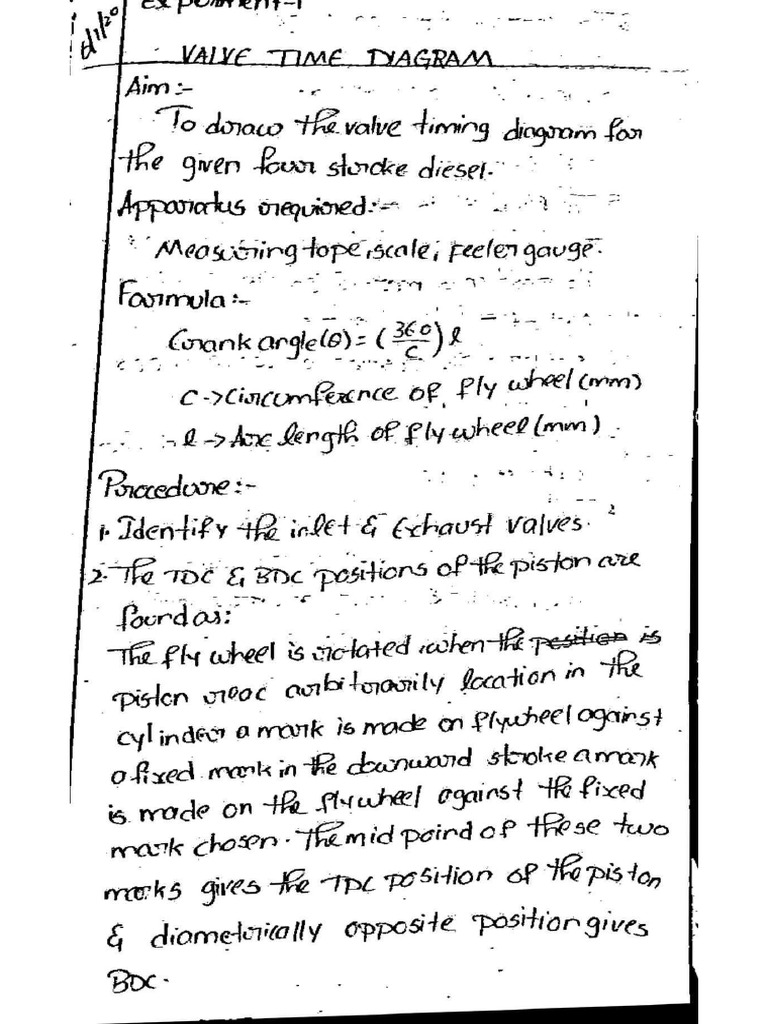 Experiment-1
VALVE TIME DIAGRAM
Aim:-
To draw the valve timing diagram for
the given four stroke diesel.
Apparatus required:-
Measuring tape, scale, Feeler gauge.
Formula:-
Crank angle(θ) = (360/C) l
C → Circumference of fly wheel (mm)
l → Arc length of fly wheel (mm)
Procedure:-
1. Identify the inlet & Exhaust valves.
2. The TDC & BDC positions of the piston are
found as:
The fly wheel is rotated, when the position is
piston arbitorarily location in the
cylinder a mark is made on flywheel against
a fixed mark in the downward stroke a mark
is made on the flywheel against the fixed
mark chosen. The mid poind of these two
marks gives the TDC position of the piston
& diametrically opposite position gives
BDC.